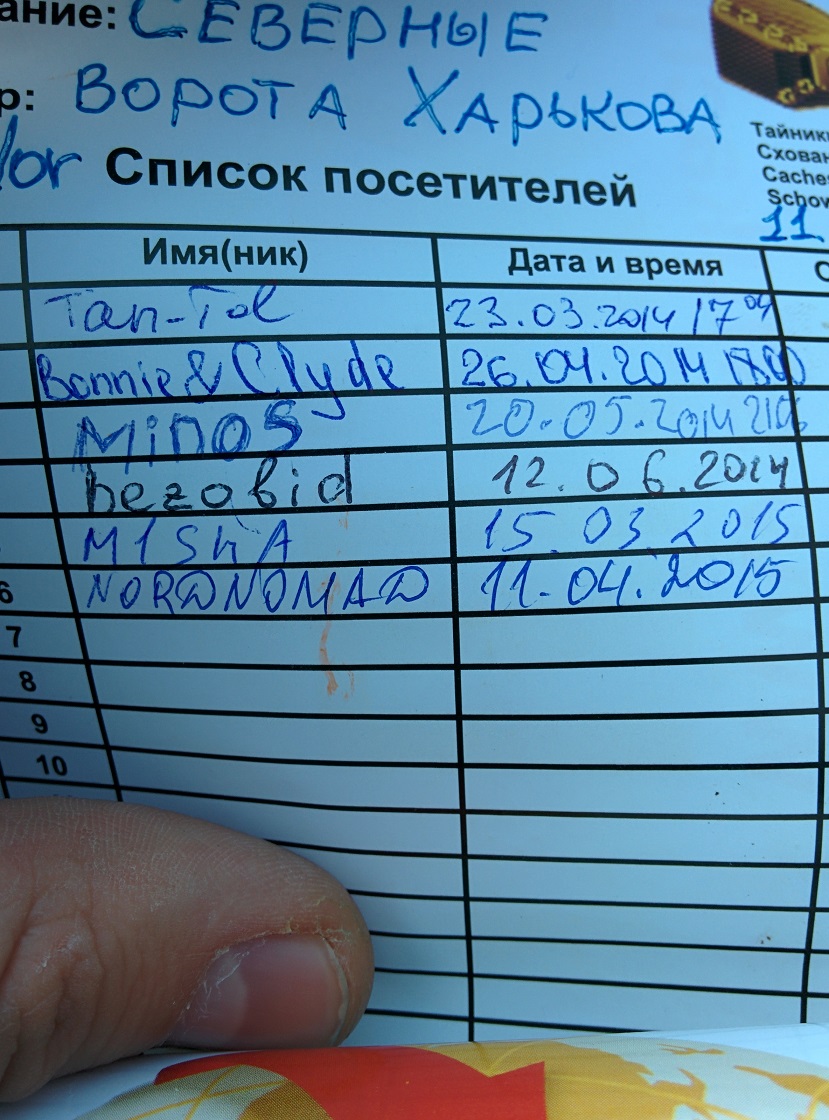 ание: СЕВЕРНЫЕ
р: ВОРОТА ХАРЬКОВА
Список посетителей
Тайник
Схован
Cache
Schow
11.
Имя(ник) Дата и время
Tan-Tol 23.03.2014 17 09
Bonnie & Clyde 26.04.2014
MiNOS 20.05.2014
bezobid 12.06.2014
M1SHA 15.03.2015
6 NORDNOMAD 11.04.2015
7
8
9
10